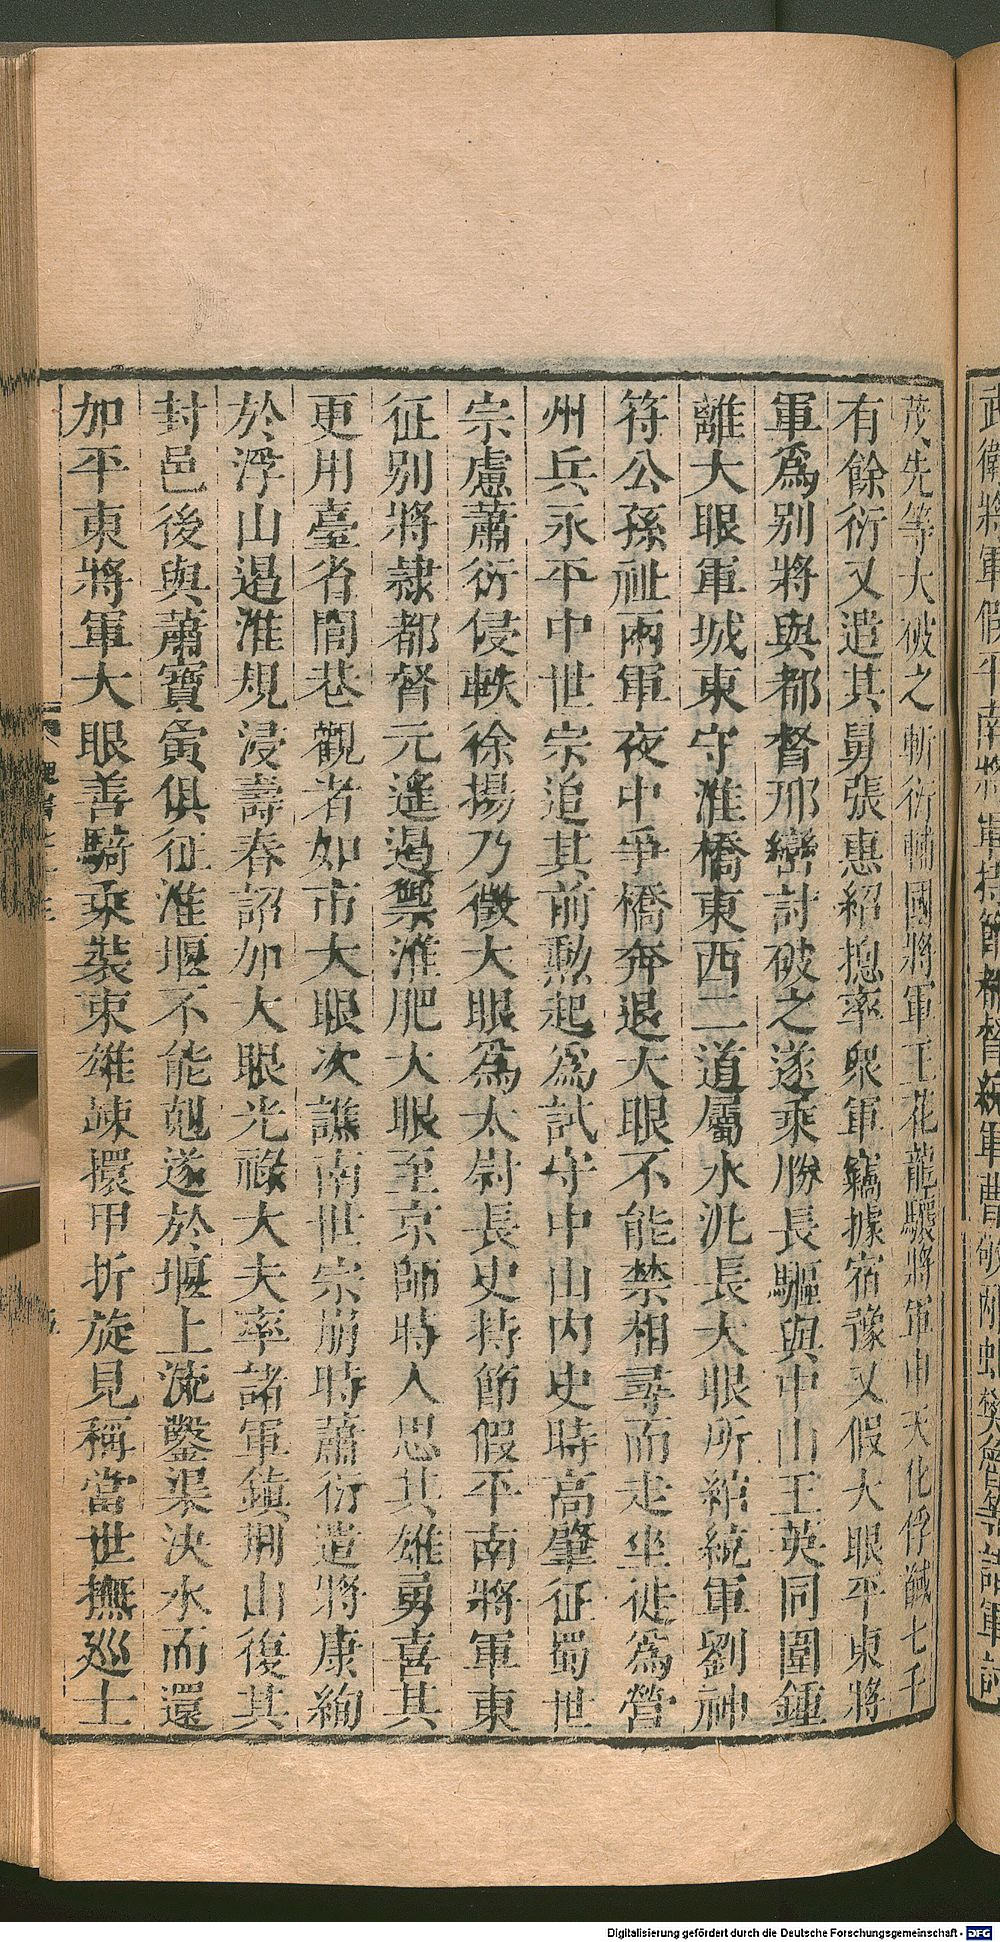 武衛將軍假平南將軍持節都督統軍曹敬邴虯樊魯等諸軍討
茂先等大破之斬衍輔國將軍王花龍驤將軍申天化俘馘七千
有餘衍又遣其舅張惠紹揔率眾軍竊據宿豫又假大眼平東將
軍爲別將與都督邢巒討破之遂乘勝長驅與中山王英同圍鍾
離大眼軍城東守淮橋東西二道屬水汎長大眼所綰統軍劉神
符公孫祉兩軍夜中爭橋奔退大眼不能禁相尋而走坐徙爲營
州兵永平中世宗追其前勲起爲試守中山內史時高肇征蜀世
宗慮蕭衍侵軼徐揚乃徵大眼爲太尉長史持節假平南將軍東
征別將隸都督元遙遏禦淮肥大眼至京師時人思其雄勇喜其
更用臺省閭巷觀者如市大眼次譙南世宗崩時蕭衍遣將康絢
於浮山遏淮規浸壽春詔加大眼光祿大夫率諸軍鎮荆山復其
封邑後與蕭寶夤俱征淮堰不能剋遂於堰上流鑿渠決水而還
加平東將軍大眼善騎乘裝束雄竦擐甲折旋見稱當世撫廵士
Digitalisierung gefördert durch die Deutsche Forschungsgemeinschaft - DFG